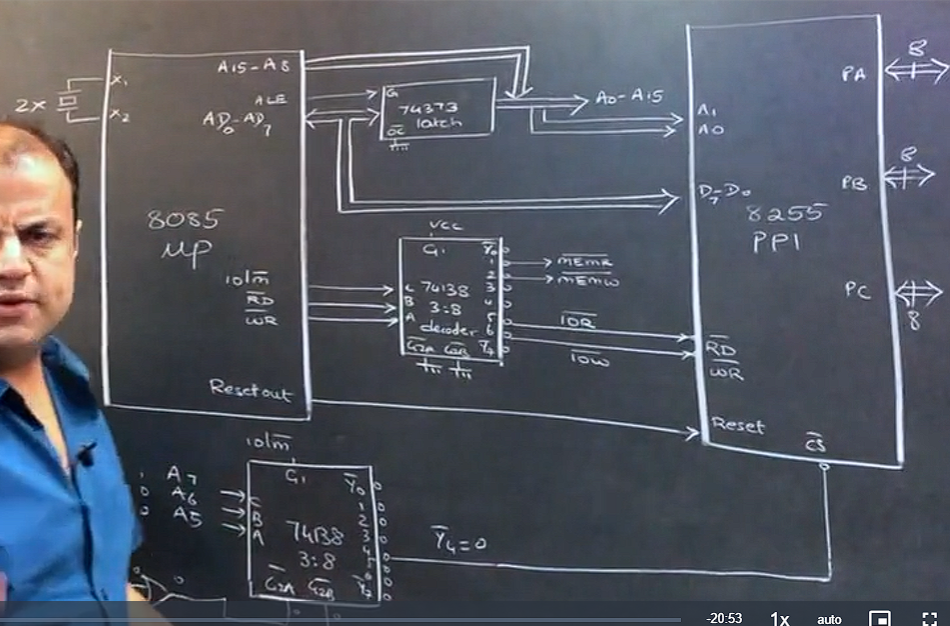 X₁
2x
X₂
A15-A8
ALE
AD₀-AD₇
8085
μP
IO/M̅
R̅D̅
W̅R̅
Resetout
G
74373
latch
O̅C̅
A0-A15
VCC
G₁
C
B
A
74138
3:8
decoder
G̅2A G̅2B
Y̅₀
1
2
3
4
5
6
Y̅₇
M̅E̅M̅R̅
M̅E̅M̅W̅
I̅O̅R̅
I̅O̅W̅
A₁
A0
D₇-D₀
8255
PPI
R̅D̅
W̅R̅
Reset
C̅S̅
PA
8
PB
8
PC
8
IO/M̅
1 A₇
0 A₆
0 A5
G₁
C
B
A
74138
3:8
G̅2A G̅2B
Y̅₀
1
2
3
4
5
6
Y̅₇
Y̅₄=0
0
0
0
0
-20:53 1x auto